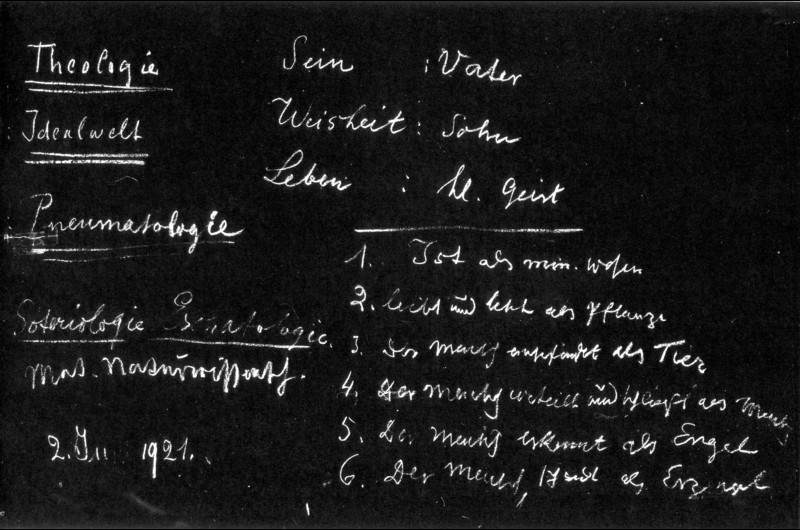 Theologie
Idealwelt
Pneumatologie
Soteriologie Eschatologie.
Mat. Naturwissensch.
2. 1921.
Sein : Vater
Weisheit : Sohn
Leben : hl. Geist
1. Ist als min. Wesen
2. leibt und lebt als Pflanze
3. Der Mensch empfindet als Tier
4. Der Mensch urteilt und schließt als Mensch
5. Der Mensch erkennt als Engel
6. Der Mensch, als Erzengel